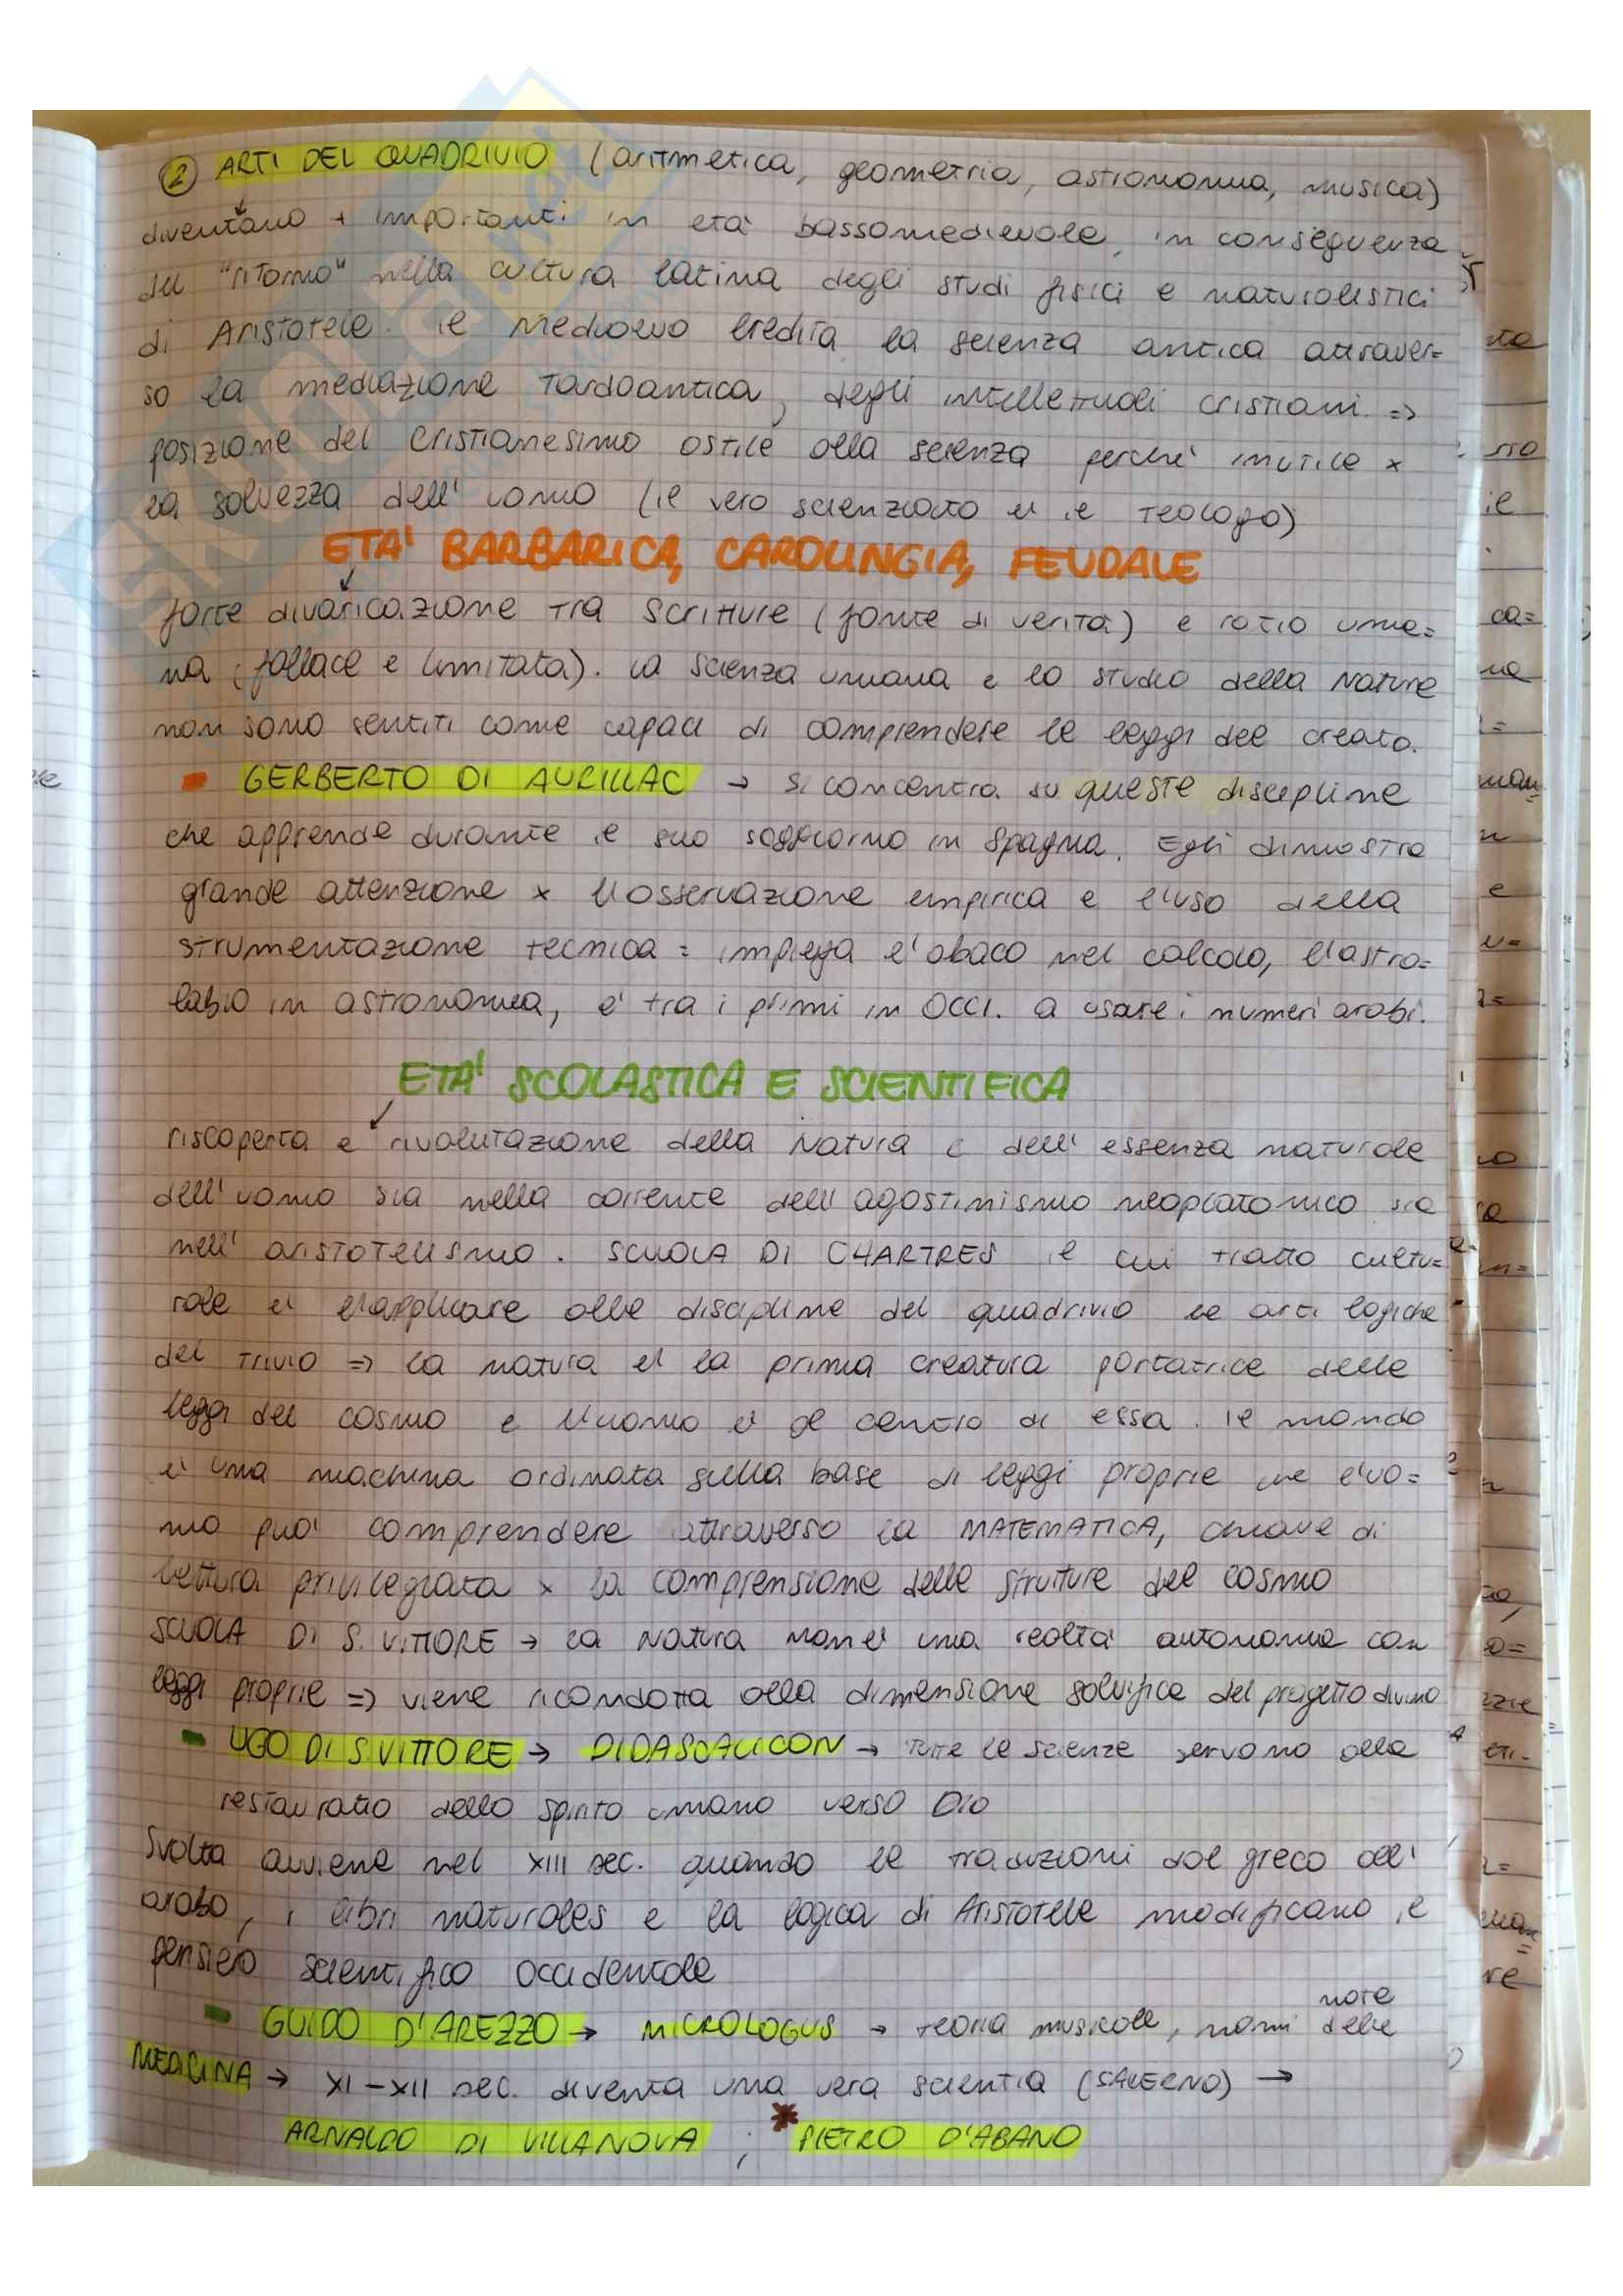 ② ARTI DEL QUADRIVIO (aritmetica, geometria, astronomia, musica)
diventano + importanti in età bassomedievale, in conseguenza
del "ritorno" nella cultura latina degli studi fisici e naturalistici
di Aristotele. Il Medioevo eredita la scienza antica attraver=
so la mediazione tardoantica, degli intellettuali cristiani =>
posizione del cristianesimo ostile alla scienza perché inutile x
la salvezza dell'uomo (il vero scienziato è il teologo)
ETA' BARBARICA, CAROLINGIA, FEUDALE
forte divaricazione tra scritture (fonte di verità) e ratio uma=
na (fallace e limitata). La scienza umana e lo studio della Natura
non sono sentiti come capaci di comprendere le leggi del creato.
GERBERTO DI AURILLAC → si concentra su queste discipline
che apprende durante il suo soggiorno in Spagna. Egli dimostra
grande attenzione x l'osservazione empirica e l'uso della
strumentazione tecnica = impiega l'abaco nel calcolo, l'astro=
labio in astronomia, è tra i primi in OCCI. a usare i numeri arabi.
ETA' SCOLASTICA E SCIENTIFICA
riscoperta e rivalutazione della Natura e dell'essenza naturale
dell'uomo sia nella corrente dell'agostinismo neoplatonico sia
nell'aristotelismo. SCUOLA DI CHARTRES il cui tratto cultu=
rale è l'applicare alle discipline del quadrivio le arti logiche
del trivio => la natura è la prima creatura portatrice delle
leggi del cosmo e l'uomo è al centro di essa. Il mondo
è una machina ordinata sulla base di leggi proprie che l'uo=
mo può comprendere attraverso la MATEMATICA, chiave di
lettura privilegiata x la comprensione delle strutture del cosmo
SCUOLA DI S. VITTORE → la Natura non è una realtà autonoma con
leggi proprie => viene ricondotta alla dimensione salvifica del progetto divino
UGO DI S. VITTORE → DIDASCALICON → tutte le scienze servono alla
restauratio dello spirito umano verso Dio
Svolta avviene nel XIII sec. quando le traduzioni dal greco all'
arabo, i libri naturales e la logica di Aristotele modificano il
pensiero scientifico occidentale
GUIDO D'AREZZO → MICROLOGUS → teoria musicale, nomi delle note
MEDICINA → XI-XII sec. diventa una vera scientia (SALERNO) →
ARNALDO DI VILLANOVA ; * PIETRO D'ABANO